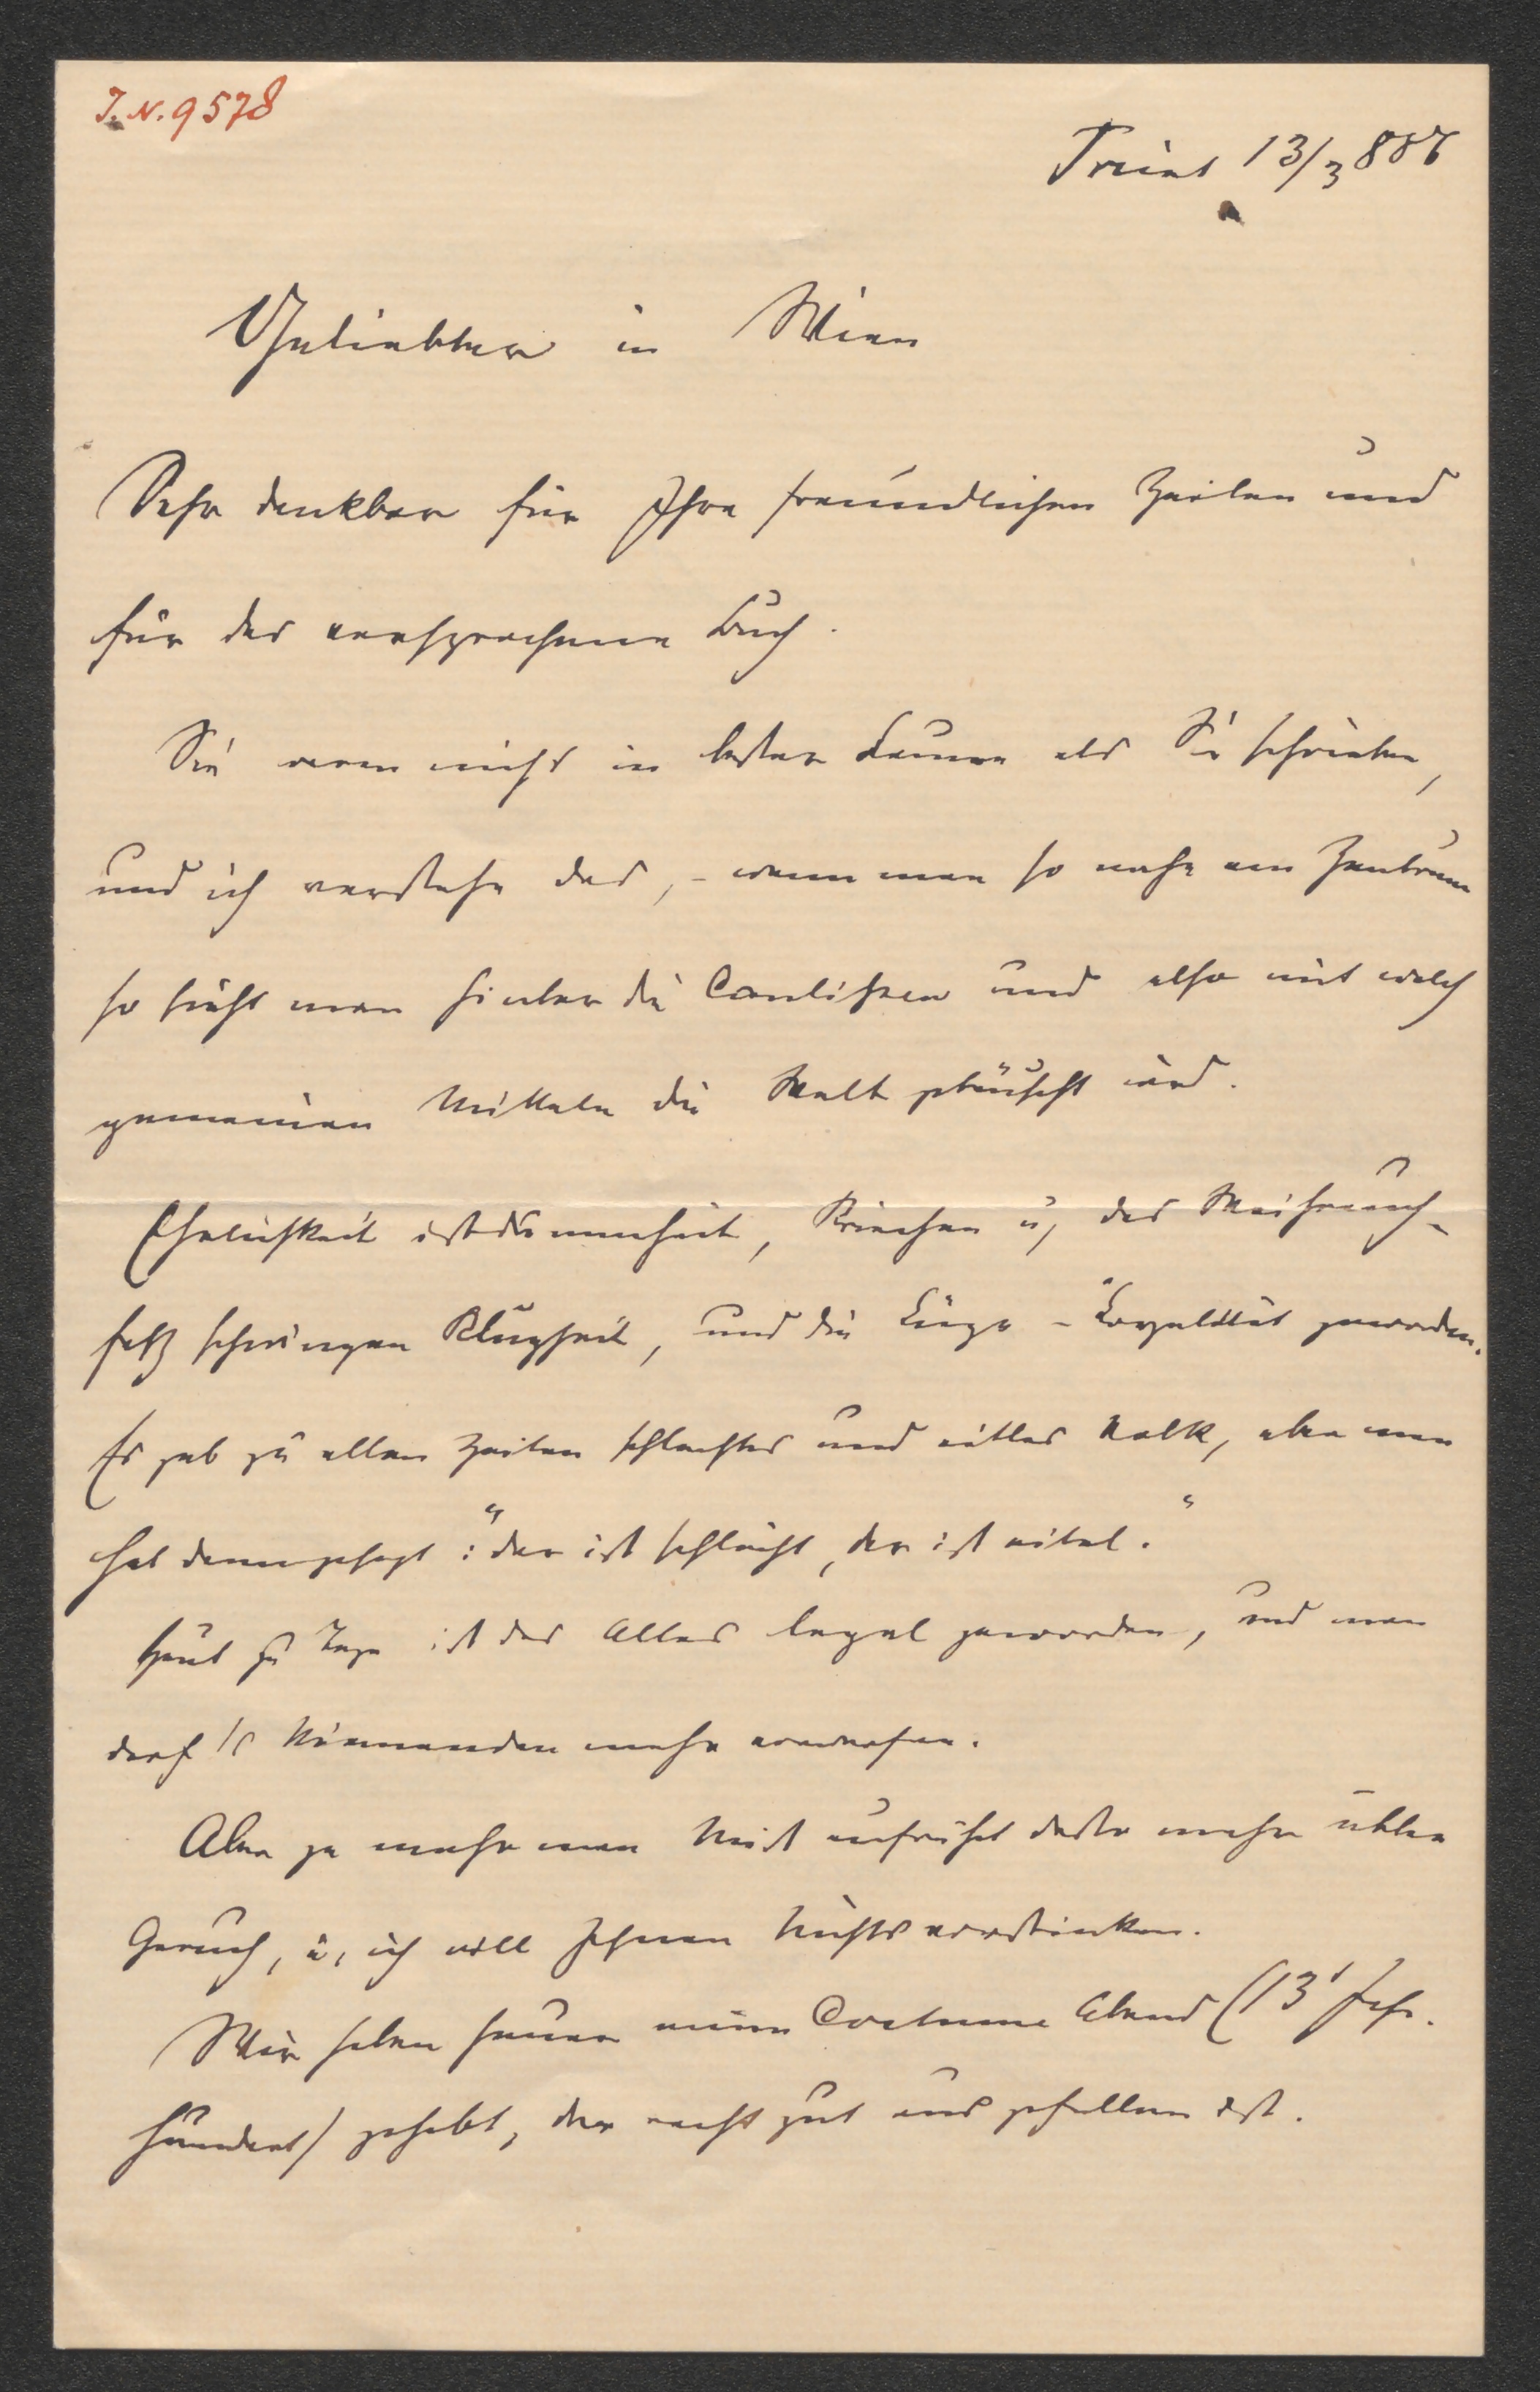 I. N. 9578
Trient 13/3 886
Geliebter in Wien
Sehr dankbar für Ihre freundlichen Zeilen und
für das versprochene Buch.
Sie waren nicht in bester Laune als Sie schrieben,
und ich verstehe das, – wenn man so nahe am Zentrum
so sieht man hinter die Coulissen und also mit welch
gemeinen Mitteln die Welt getäuscht wird.
Ehrlichkeit ist Dummheit, Kriechen u, das Weihrauch-
faß schwingen Klugheit, und die Lüge – Loyalität geworden.
Es gab zu allen Zeiten schlechtes und eitles Volk, aber man
hat dann gesagt: "der ist schlecht, der ist eitel."
Heut zu Tage ist das Alles legal geworden, und man
darf 's Niemanden mehr vorwerfen.
Aber je mehr man Mist aufrührt desto mehr übler
Geruch, u, ich will Ihnen Nichts verstinken.
Wir haben heuer einen Costume Abend (13' Jahr.
hundert) gehabt, der recht gut ausgefallen ist.